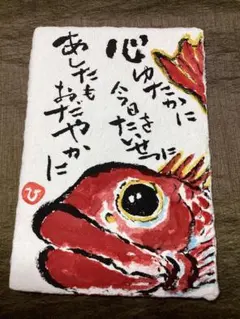 心ゆたかに
今日を
たいせつに
あしたも
おだやかに
ひ